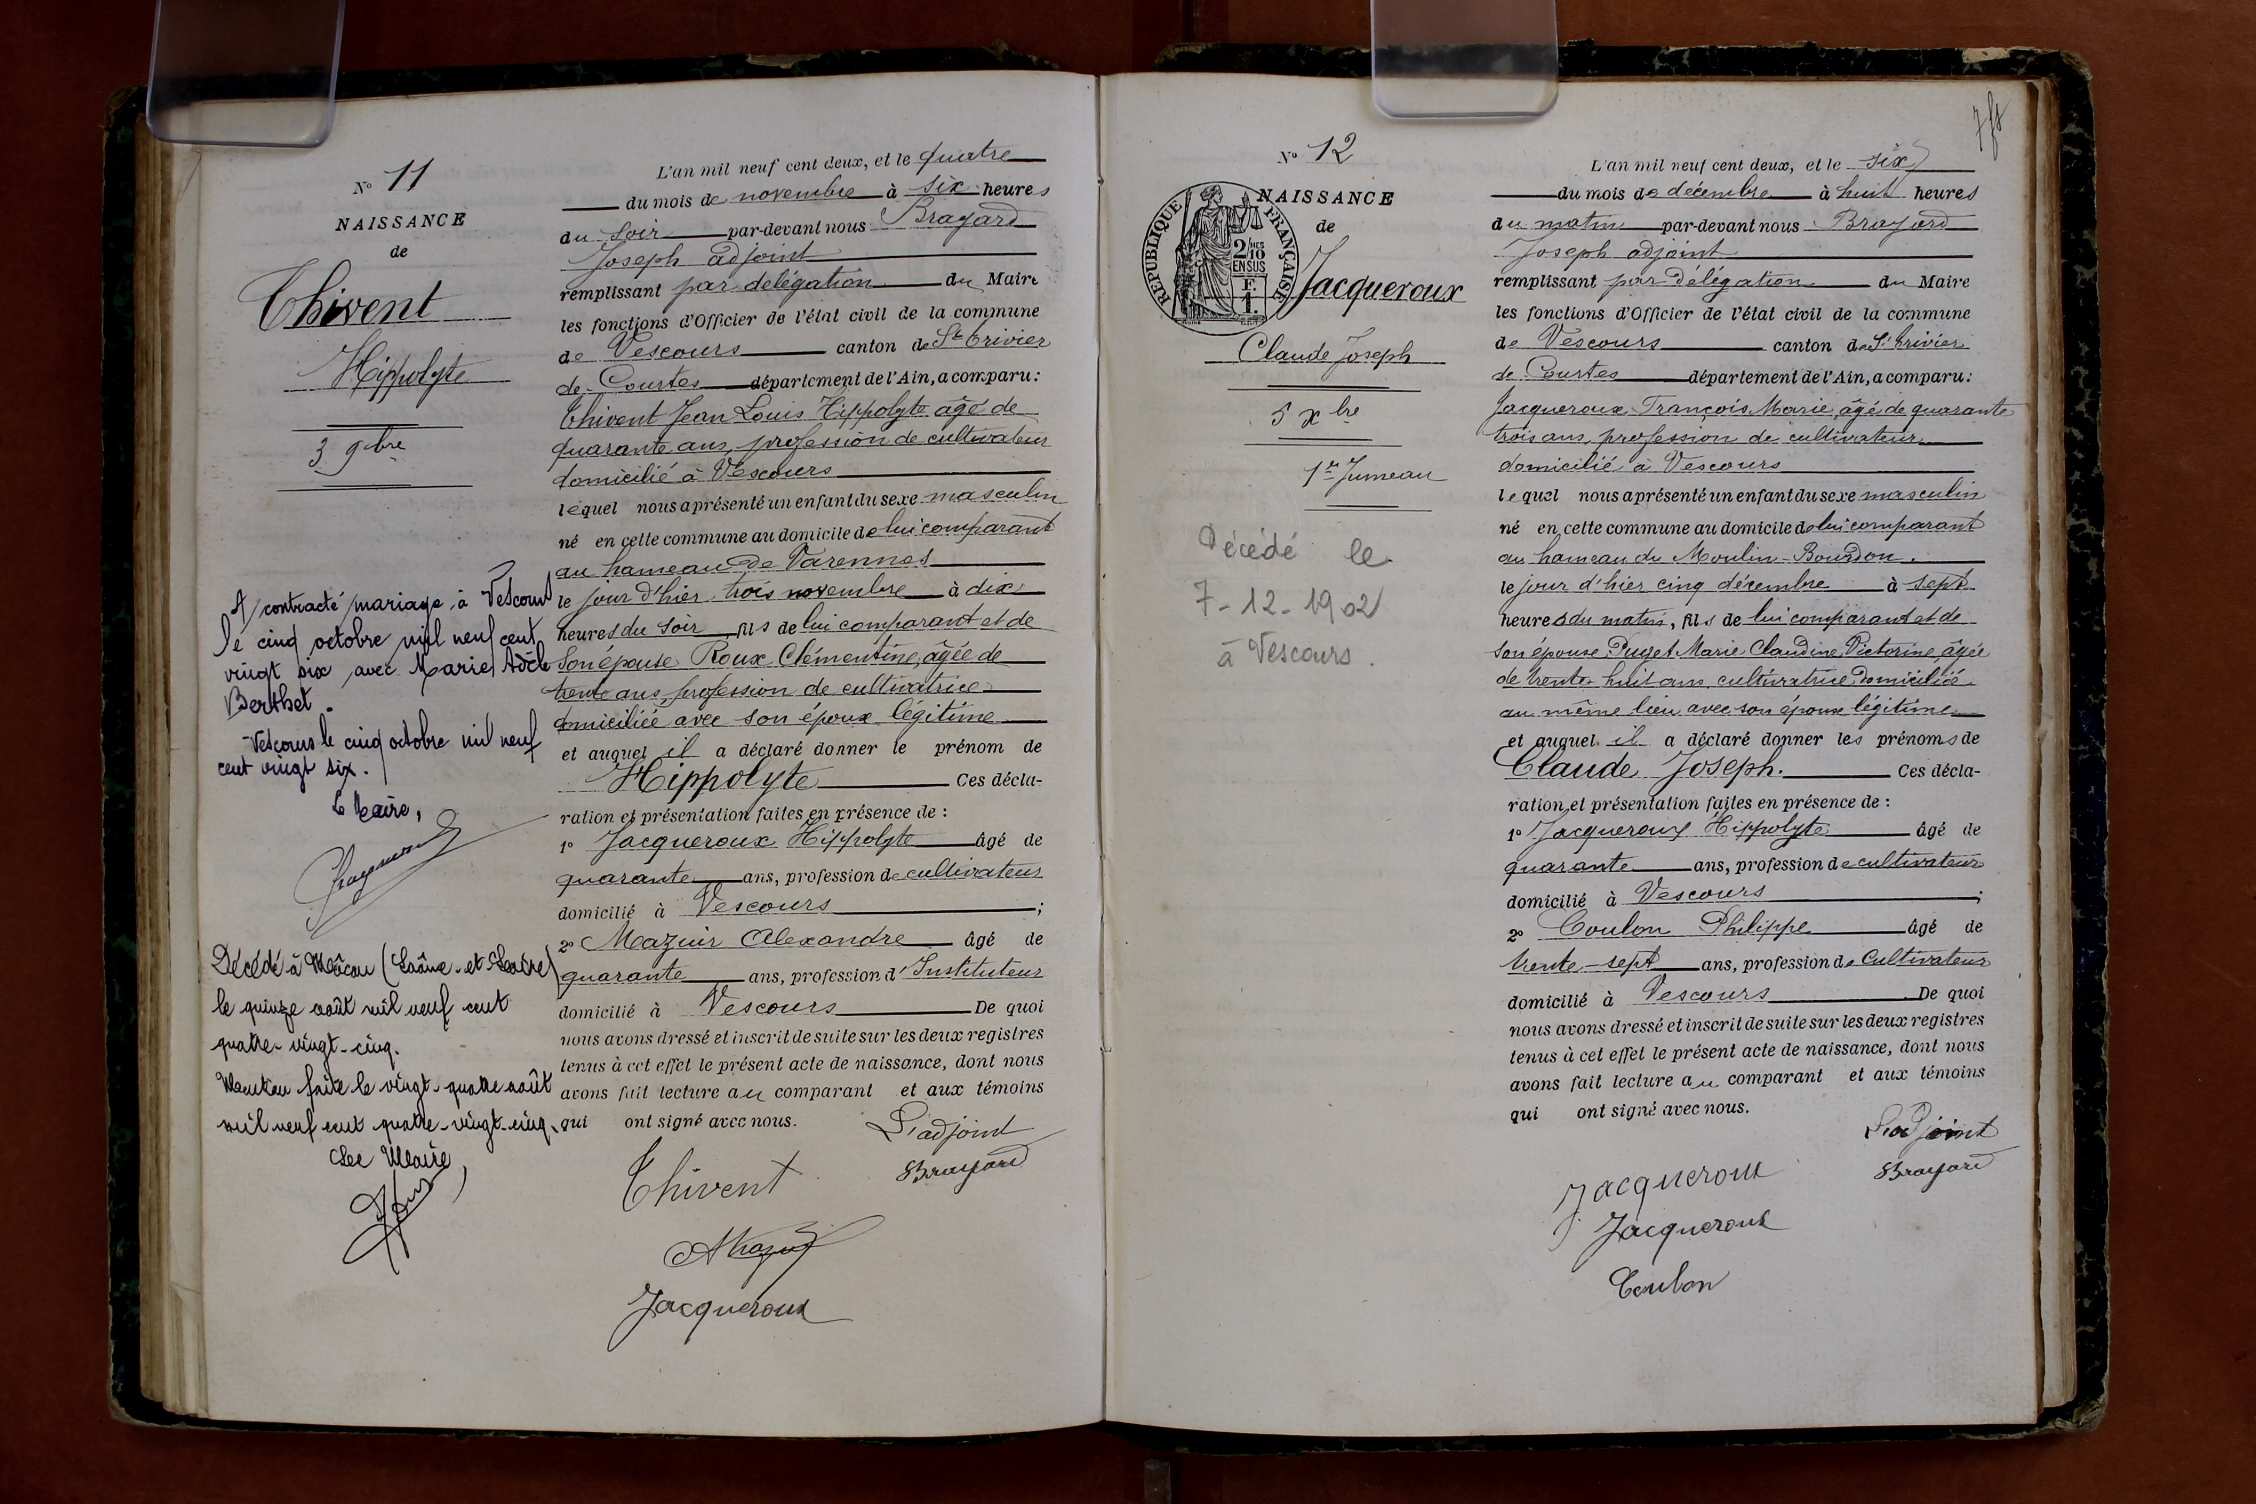 N° 11
NAISSANCE
de
Thivent
Hippolyte
3 9bre
A contracté mariage à Vescours
le cinq octobre mil neuf cent
vingt six avec Marie Adèle
Berthet.
Vescours le cinq octobre mil neuf
cent vingt six.
Le Maire,
Décédé à Mâcon (Saône-et-Loire)
le quinze août mil neuf cent
quatre-vingt-cinq.
Mention faite le vingt-quatre août
mil neuf cent quatre-vingt-cinq.
Le Maire,
L'an mil neuf cent deux, et le quatre
du mois de novembre à six heures
du soir par-devant nous Brayard
Joseph adjoint
remplissant par délégation du Maire
les fonctions d'Officier de l'état civil de la commune
de Vescours canton de St Trivier
de Courtes département de l'Ain, a comparu:
Thivent Jean Louis Hippolyte âgé de
quarante ans, profession de cultivateur
domicilié à Vescours
lequel nous a présenté un enfant du sexe masculin
né en cette commune au domicile de lui comparant
au hameau de Varennes
le jour d'hier trois novembre à dix
heures du soir, fils de lui comparant et de
son épouse Roux Clémentine, âgée de
trente ans, profession de cultivatrice
domiciliée avec son époux légitime
et auquel il a déclaré donner le prénom de
Hippolyte Ces décla-
ration et présentation faites en présence de :
1° Jacqueroux Hippolyte âgé de
quarante ans, profession de cultivateur
domicilié à Vescours ;
2° Mazuir Alexandre âgé de
quarante ans, profession d'Instituteur
domicilié à Vescours De quoi
nous avons dressé et inscrit de suite sur les deux registres
tenus à cet effet le présent acte de naissance, dont nous
avons fait lecture au comparant et aux témoins
qui ont signé avec nous.
L'adjoint
Thivent Brayard
AMazuir
Jacqueroux
N° 12
NAISSANCE
de
REPUBLIQUE FRANÇAISE
2/10mes
EN SUS
F.
1.
Jacqueroux
Claude Joseph
5 Xbre
1er Jumeau
Décédé le
7-12-1902
à Vescours.
L'an mil neuf cent deux, et le six
du mois de décembre à huit heures
du matin par-devant nous Brayard
Joseph adjoint
remplissant par délégation du Maire
les fonctions d'Officier de l'état civil de la commune
de Vescours canton de St Trivier
de Courtes département de l'Ain, a comparu:
Jacqueroux François Marie, âgé de quarante
trois ans, profession de cultivateur
domicilié à Vescours
lequel nous a présenté un enfant du sexe masculin
né en cette commune au domicile de lui comparant
au hameau du Moulin-Bourdon.
le jour d'hier cinq décembre à sept
heures du matin, fils de lui comparant et de
son épouse Puget Marie Claudine Victorine, âgée
de trente huit ans, cultivatrice domiciliée
au même lieu avec son époux légitime
et auquel il a déclaré donner les prénoms de
Claude Joseph. Ces décla-
ration et présentation faites en présence de :
1° Jacqueroux Hippolyte âgé de
quarante ans, profession de cultivateur
domicilié à Vescours ;
2° Coulon Philippe âgé de
trente-sept ans, profession de Cultivateur
domicilié à Vescours De quoi
nous avons dressé et inscrit de suite sur les deux registres
tenus à cet effet le présent acte de naissance, dont nous
avons fait lecture au comparant et aux témoins
qui ont signé avec nous.
L'adjoint
Jacqueroux Brayard
Jacqueroux
Coulon